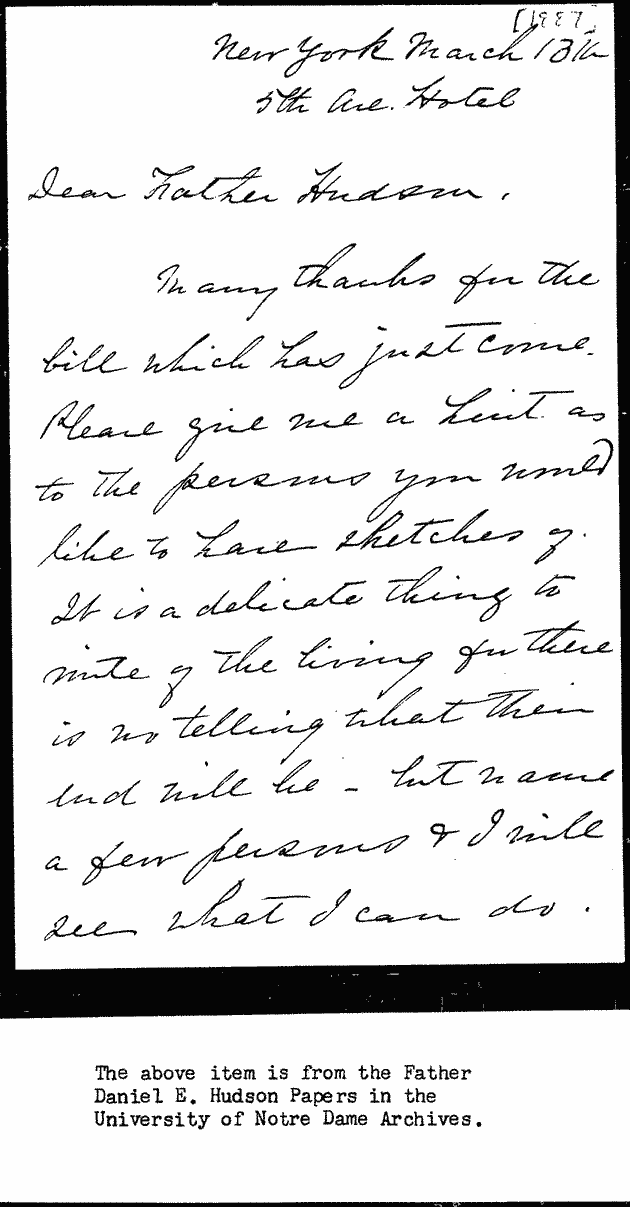 [1887]
New York March 13th
5th Ave. Hotel
Dear Father Hudson,
Many thanks for the
bill which has just come.
Please give me a hint as
to the persons you would
like to have sketches of.
It is a delicate thing to
write of the living for there
is no telling what their
end will be - but name
a few persons & I will
see what I can do.
The above item is from the Father
Daniel E. Hudson Papers in the
University of Notre Dame Archives.